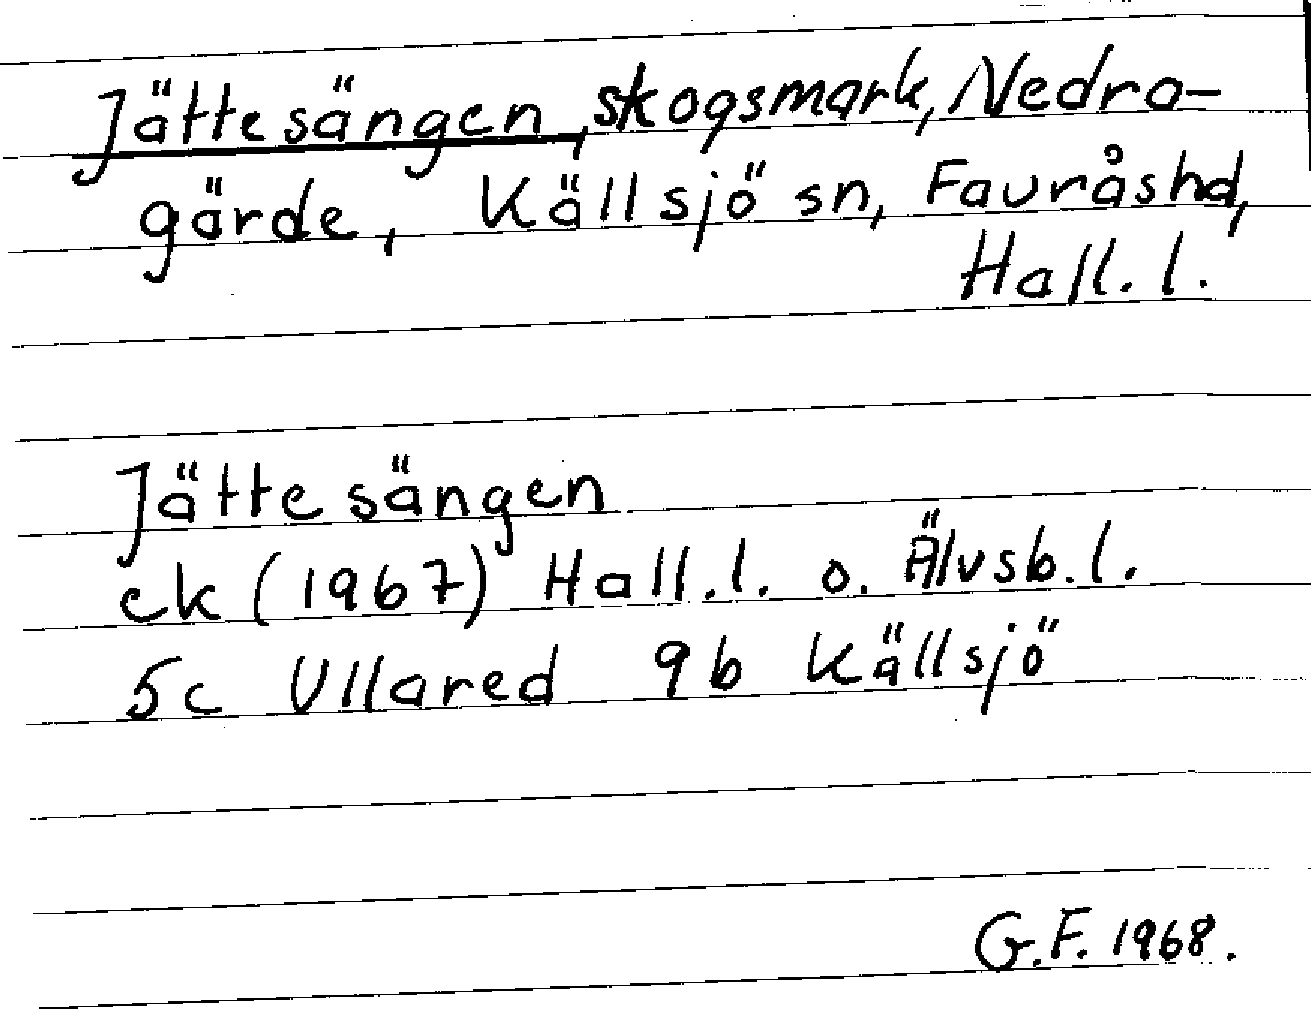 Jättesängen, skogsmark, Nedra-
gärde, Källsjö sn, Fauråshd,
Hall. l.
Jättesängen
ek (1967) Hall. l. o. Älvsb. l.
5c Ullared 9b Källsjö
G.F. 1968.